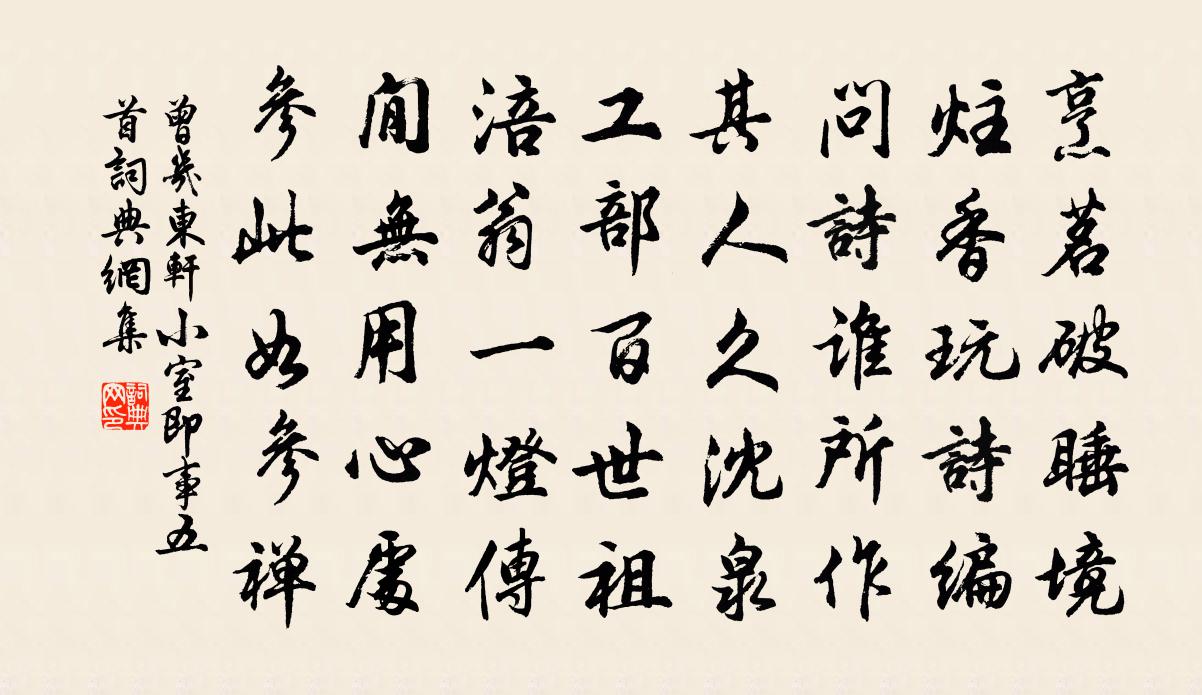 烹茗破睡境
炷香玩詩編
問詩誰所作
其人久沈泉
工部百世祖
涪翁一燈傳
閒無用心處
參此如參禅
曾幾東軒小室即事五
首詞典網集
詞典
网印